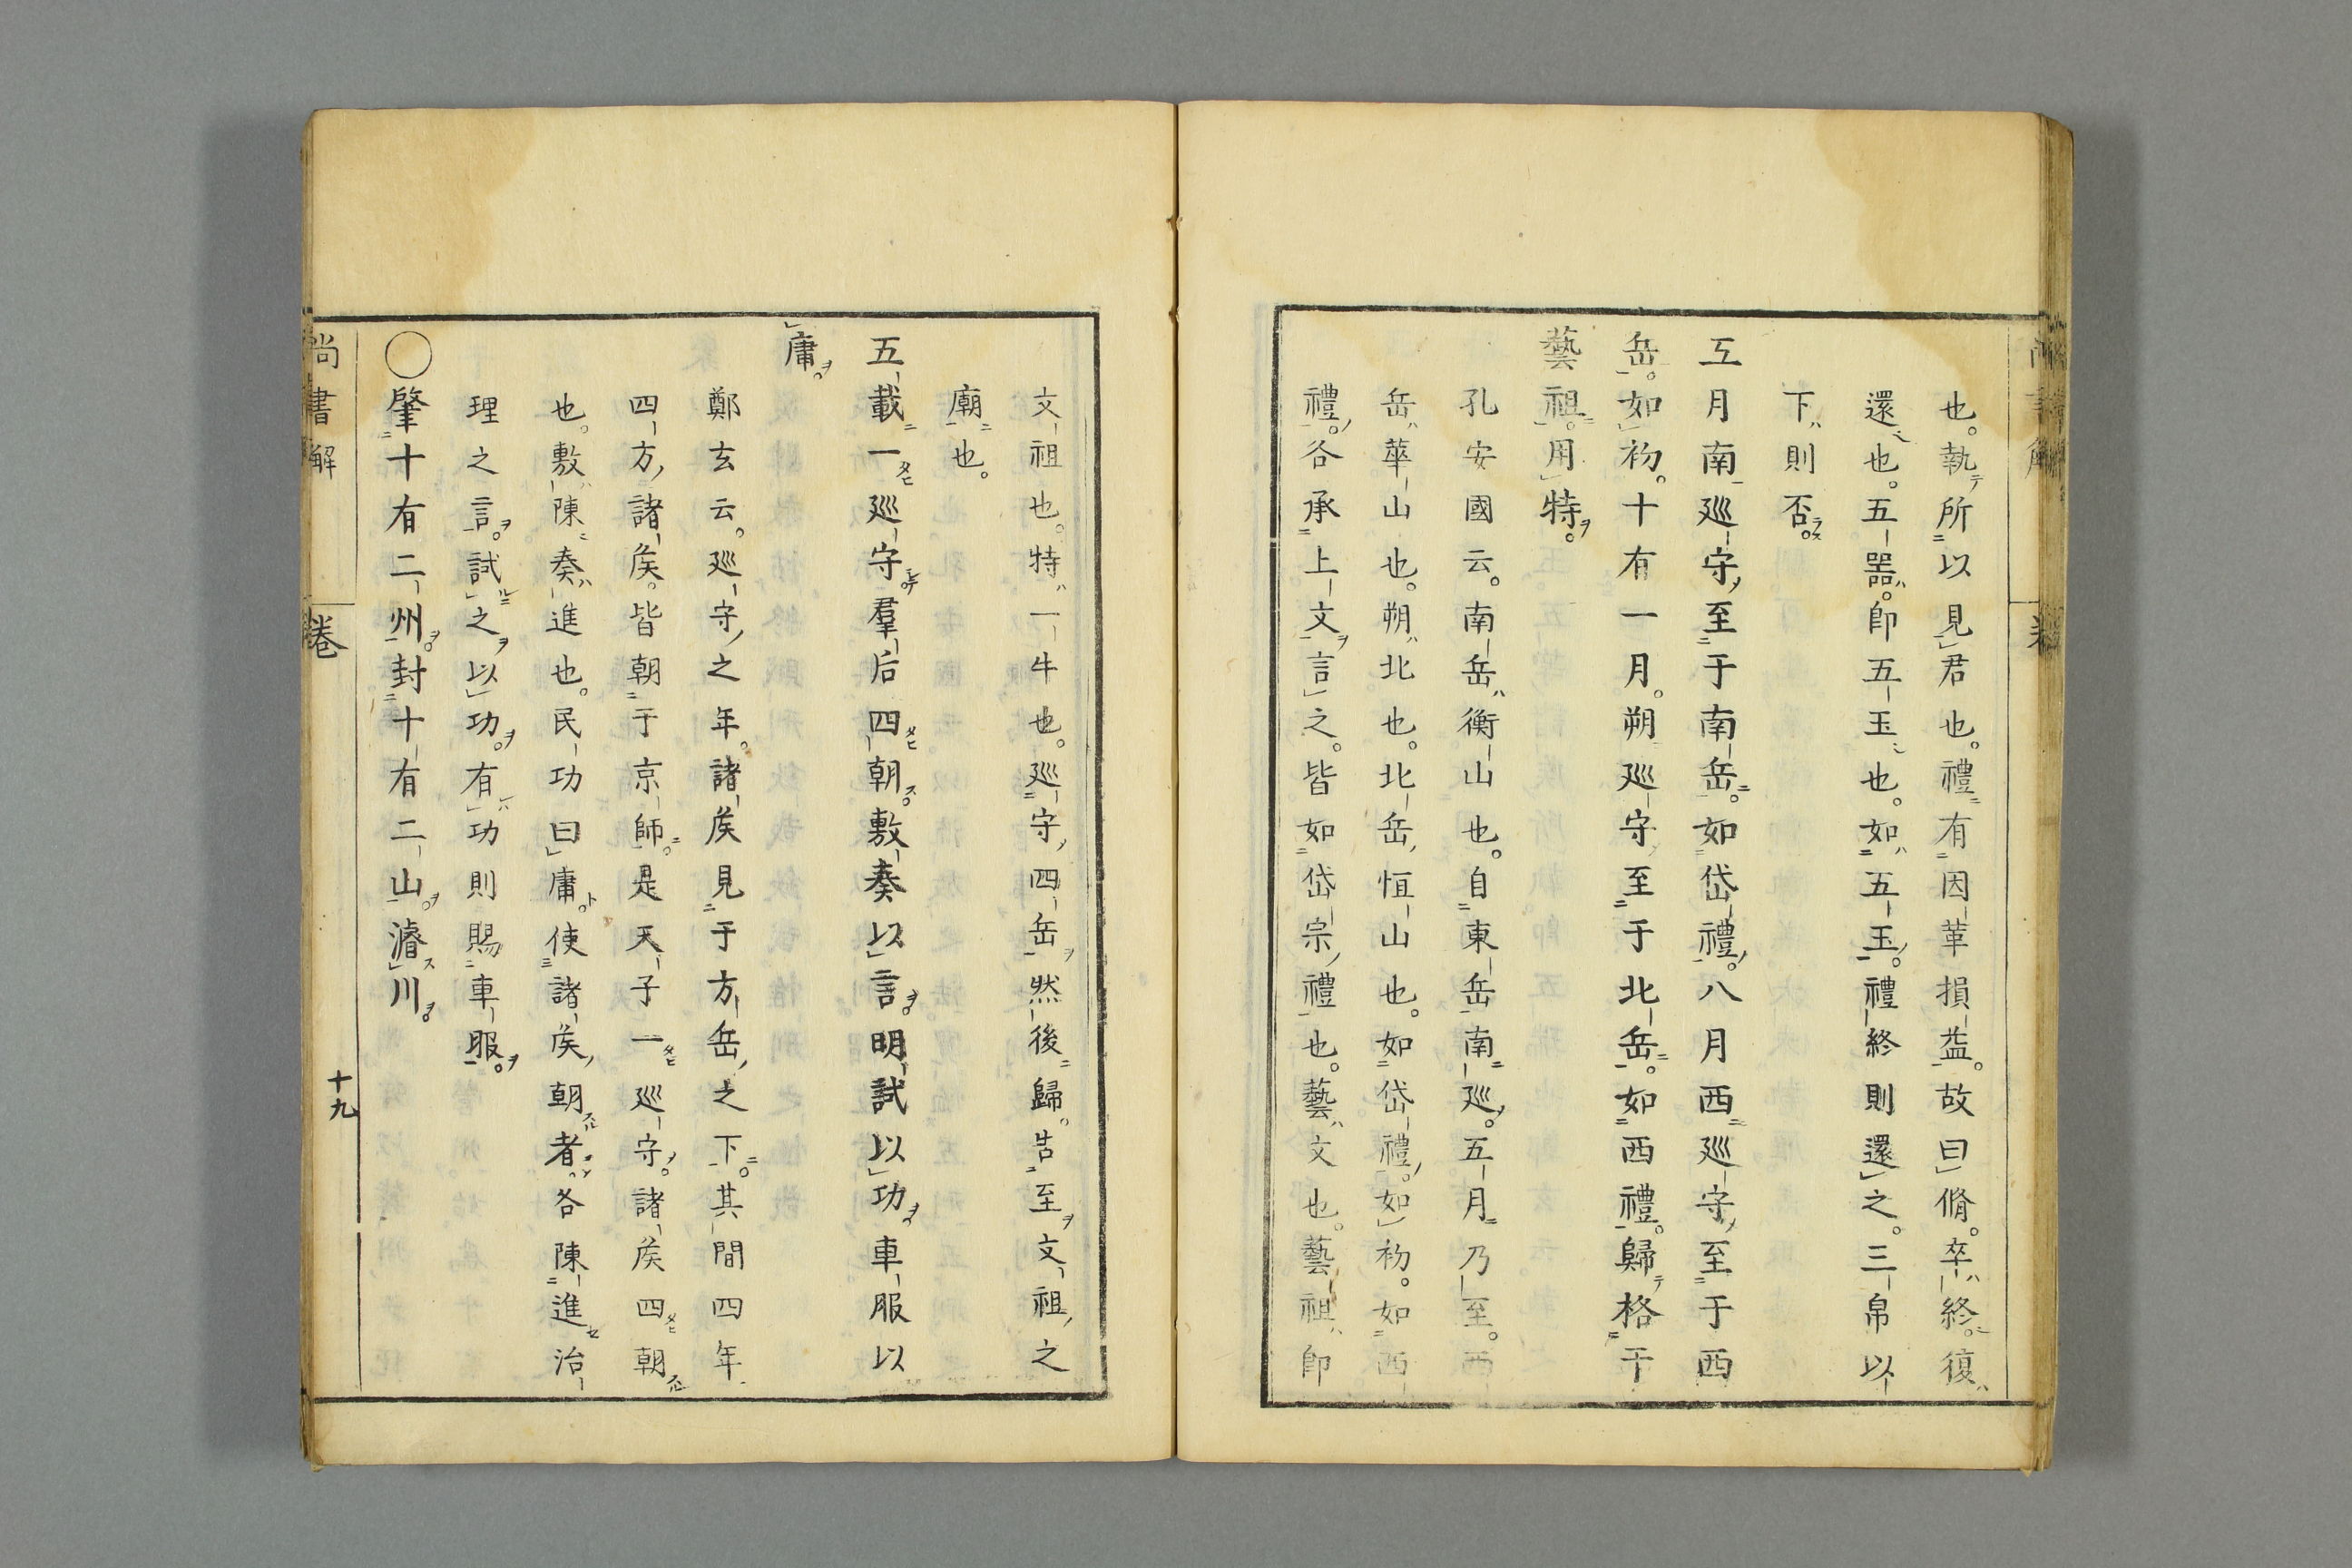 也。執所以見君也。禮有因革損益。故曰脩。卒終。復
還也。五器。卽五玉也。如五玉。禮終則還之。三帛以
下則否。
五月南巡守至于南岳。如岱禮。八月西巡守至于西
岳。如初。十有一月。朔巡守至于北岳。如西禮。歸格于
藝祖。用特。
孔安國云。南岳衡山也。自東岳南巡。五月乃至。西
岳華山也。朔北也。北岳恒山也。如岱禮。如初。如西
禮。各承上文言之。皆如岱宗禮也。藝文也。藝祖卽
文祖也。特一牛也。巡守四岳然後歸。告至文祖之
廟也。
五載一巡守。羣后四朝。敷奏以言。明試以功。車服以
庸。
鄭玄云。巡守之年。諸矦見于方岳之下。其間四年
四方諸矦。皆朝于京師。是天子一巡守。諸矦四朝
也。敷陳奏進也。民功曰庸。使諸矦朝者。各陳進治
理之言。試之以功。有功則賜車服。
○肇十有二州。封十有二山。濬川。
尚書解 卷
十九